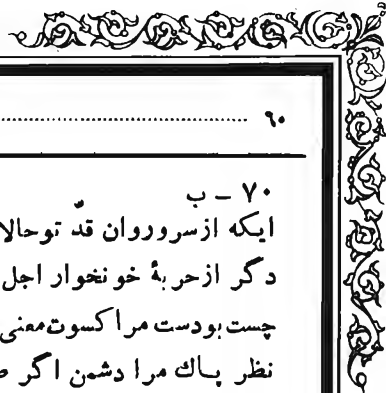 ۹۰
۷۰ - ب
ایکه از سرو روان قدّ تو حالا
دگر از حربهٔ خونخوار اجل
چست بودست مرا کسوت معنی
نظر پاك مرا دشمن اگر